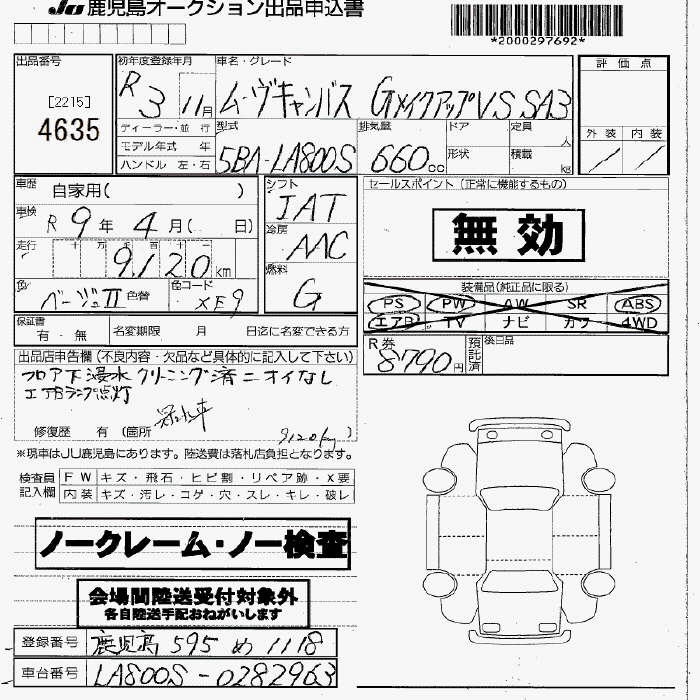 JU 鹿児島オークション出品申込書
*2000297692*
出品番号 初年度登録年月 車名・グレード 評価点
[2215]
4635
R3 11月 ムーヴキャンバス GメイクアップVS SA3
ディーラー・並行 型式 排気量 ドア 定員 人 外装 内装
モデル年式 年 形状 積載 kg
ハンドル 左・右 5BA-LA800S 660cc
車歴 自家用( ) シフト セールスポイント(正常に機能するもの)
JAT
車検 R 9年 4月( 日) 冷房 無効
走行 十 万 千 百 十 一 AAC
9,120km 燃料
色 ベージュII 色替 色コード XE9 G
装備品(純正品に限る)
PS PW AW SR ABS
エアB TV ナビ カワ 4WD
保証書 有・無 名変期限 月 日迄に名変できる方
R券 8790円 預託済 後日品
出品店申告欄(不良内容・欠品など具体的に記入して下さい)
フロア下浸水 クリーニング済ニオイなし
エアBランプ点灯
冠水車
修復歴 有 (箇所 9120km )
※現車はJU鹿児島にあります。陸送費は落札店負担となります。
検査員 FW キズ・飛石・ヒビ割・リペア跡・X要
記入欄 内装 キズ・汚レ・コゲ・穴・スレ・キレ・破レ
ノークレーム・ノー検査
会場間陸送受付対象外
各自陸送手配おねがいします
登録番号 鹿児島 595 め 1118
車台番号 LA800S-0282963